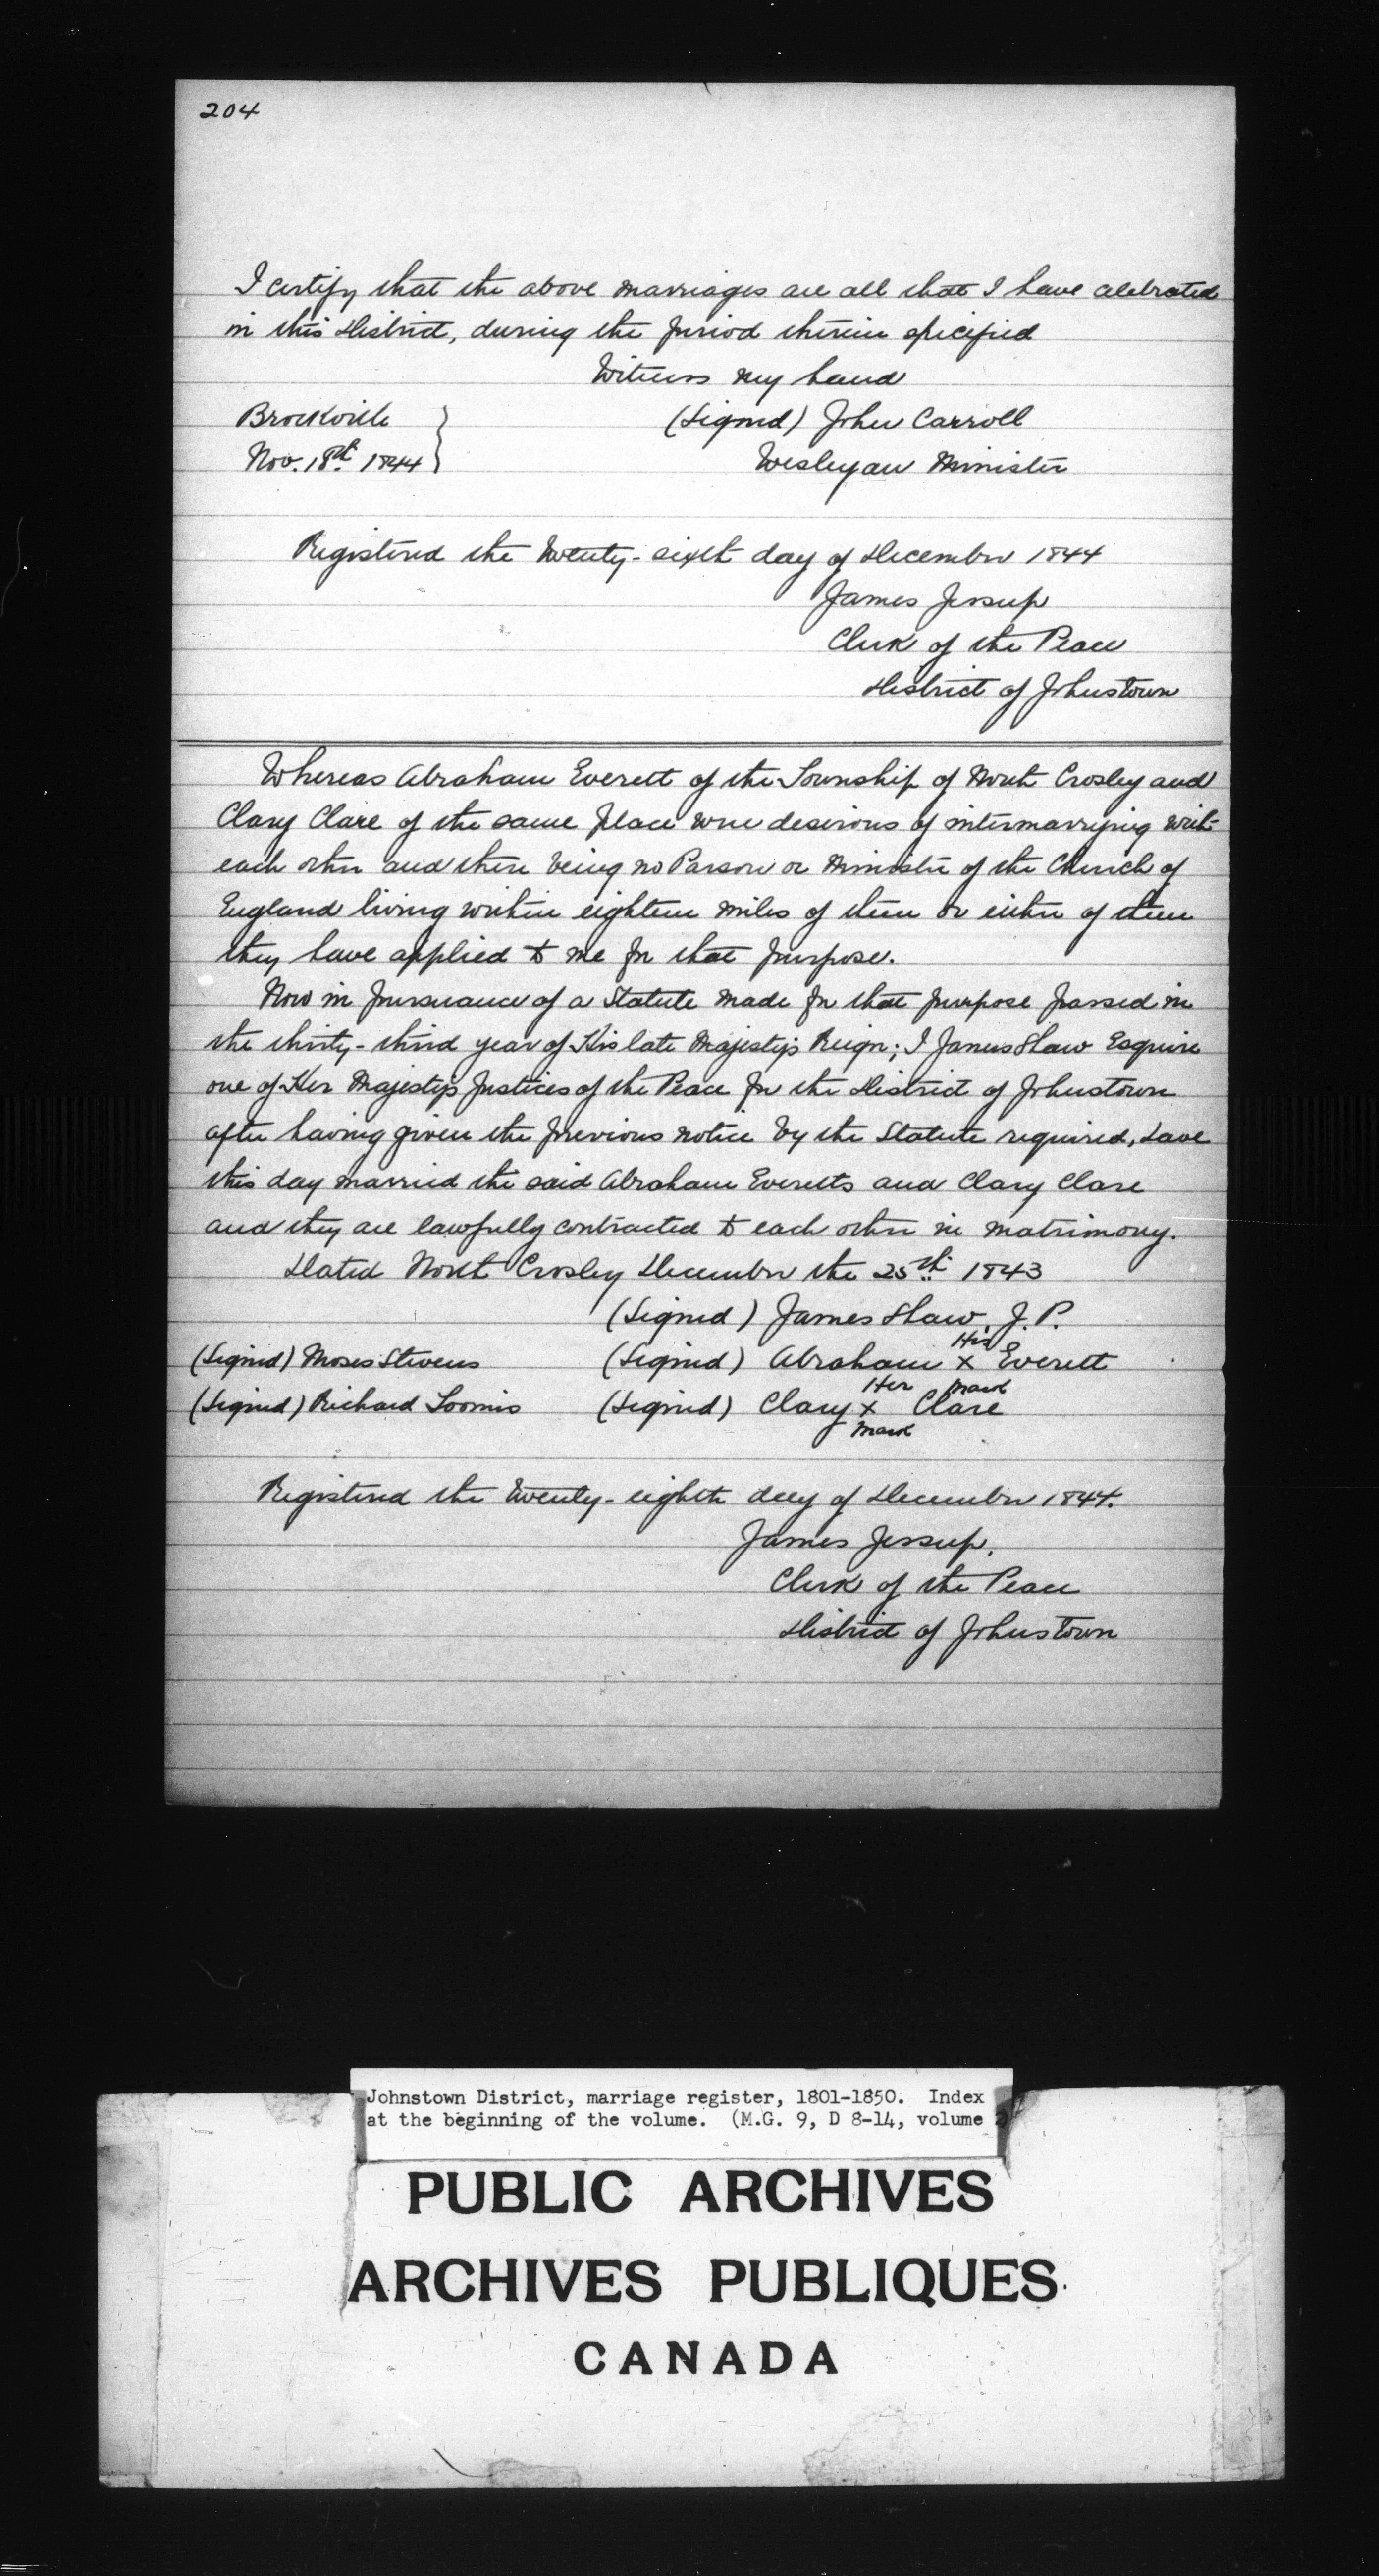 204
I certify that the above marriages are all that I have celebrated
in this District, during the period therein specified
Witness my hand
Brockville (Signed) John Carroll
Nov. 18th 1844 Wesleyan Minister
Registered the Twenty-sixth day of December 1844
James Jessup
Clerk of the Peace
District of Johnstown
Whereas Abraham Everett of the Township of North Crosley and
Clary Clare of the same place were desirous of intermarrying with
each other and there being no Parson or Minister of the Church of
England living within eighteen miles of them or either of them
they have applied to me for that purpose.
Now in pursuance of a Statute made for that purpose passed in
the thirty-third year of His late Majesty's Reign; I James Shaw Esquire
one of Her Majesty's Justices of the Peace for the District of Johnstown
after having given the previous notice by the Statute required, have
this day married the said Abraham Everetts and Clary Clare
and they are lawfully contracted to each other in matrimony.
Dated North Crosley December the 25th 1843
(Signed) James Shaw, J. P.
His
(Signed) Moses Stevens (Signed) Abraham x Everett
Her mark
(Signed) Richard Loomis (Signed) Clary x Clare
mark
Registered the Twenty-eighth day of December 1844.
James Jessup,
Clerk of the Peace
District of Johnstown
Johnstown District, marriage register, 1801-1850. Index
at the beginning of the volume. (M.G. 9, D 8-14, volume 2)
PUBLIC ARCHIVES
ARCHIVES PUBLIQUES
CANADA